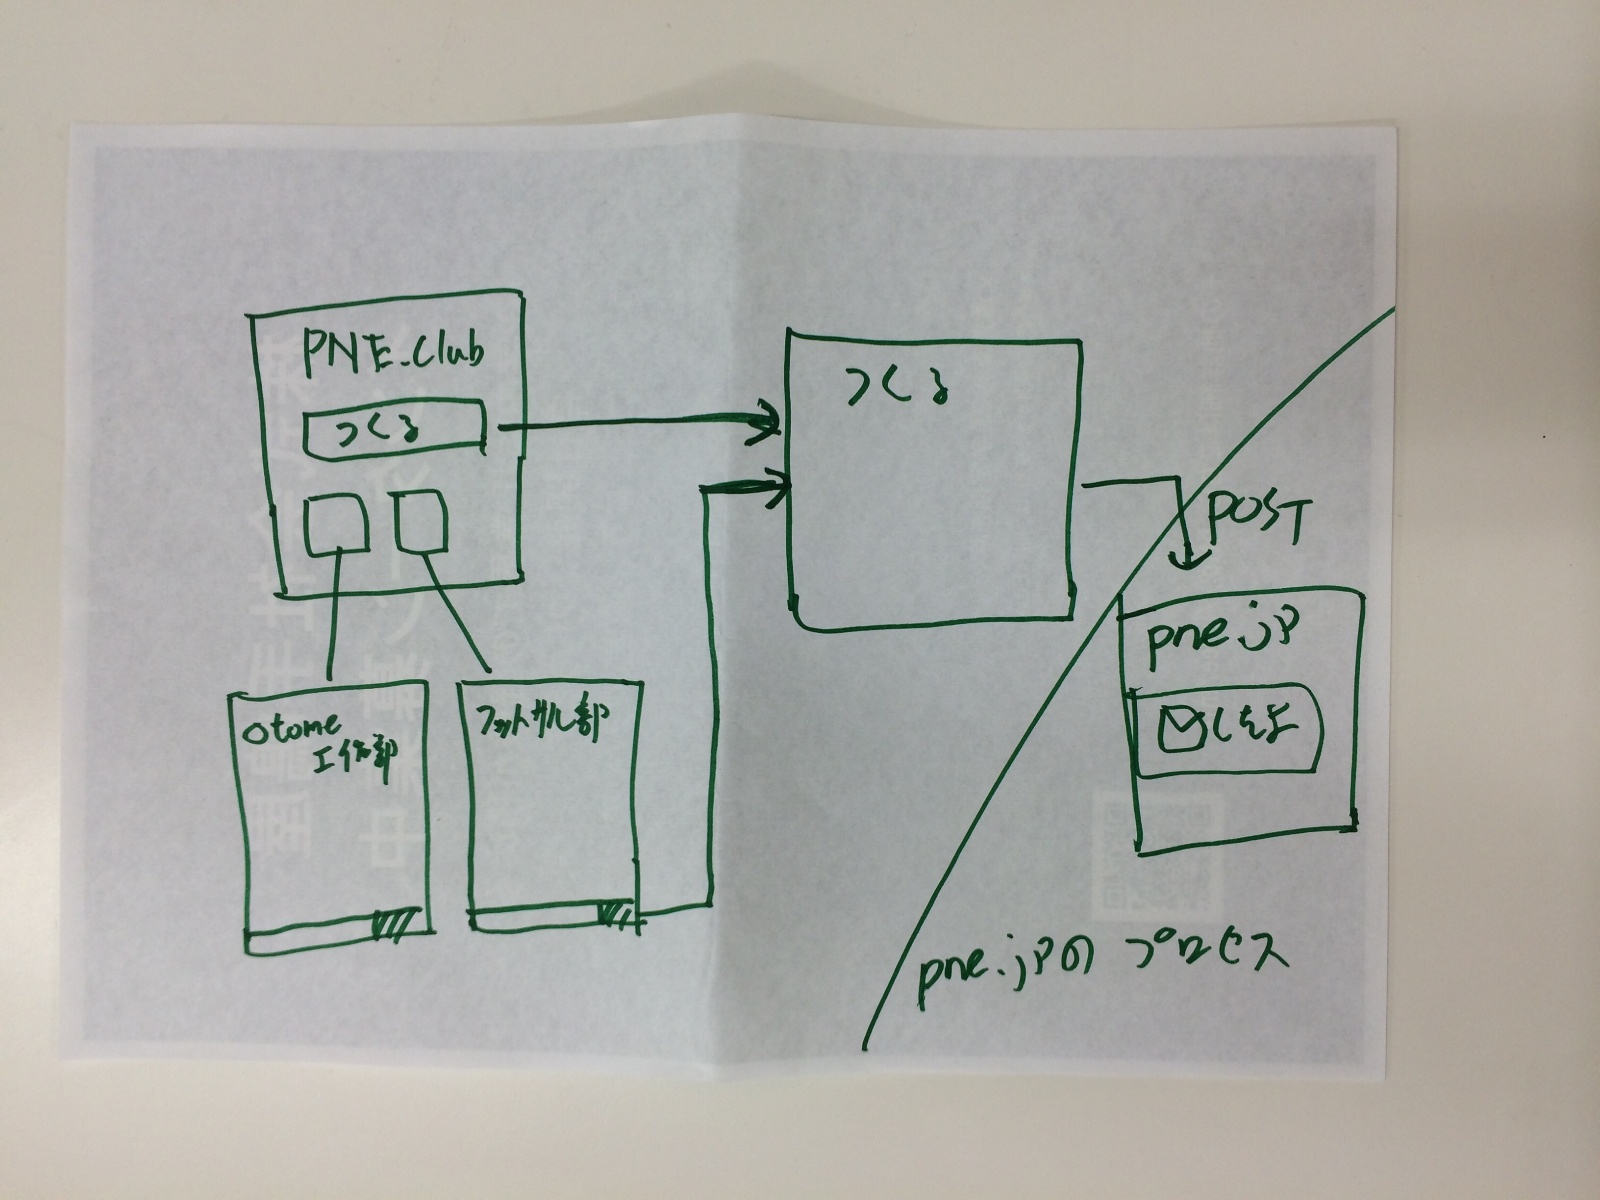 PNE.club
つくる
otome
工作部
フットサル部
つくる
POST
pne.jp
したよ
pne.jpの プロセス